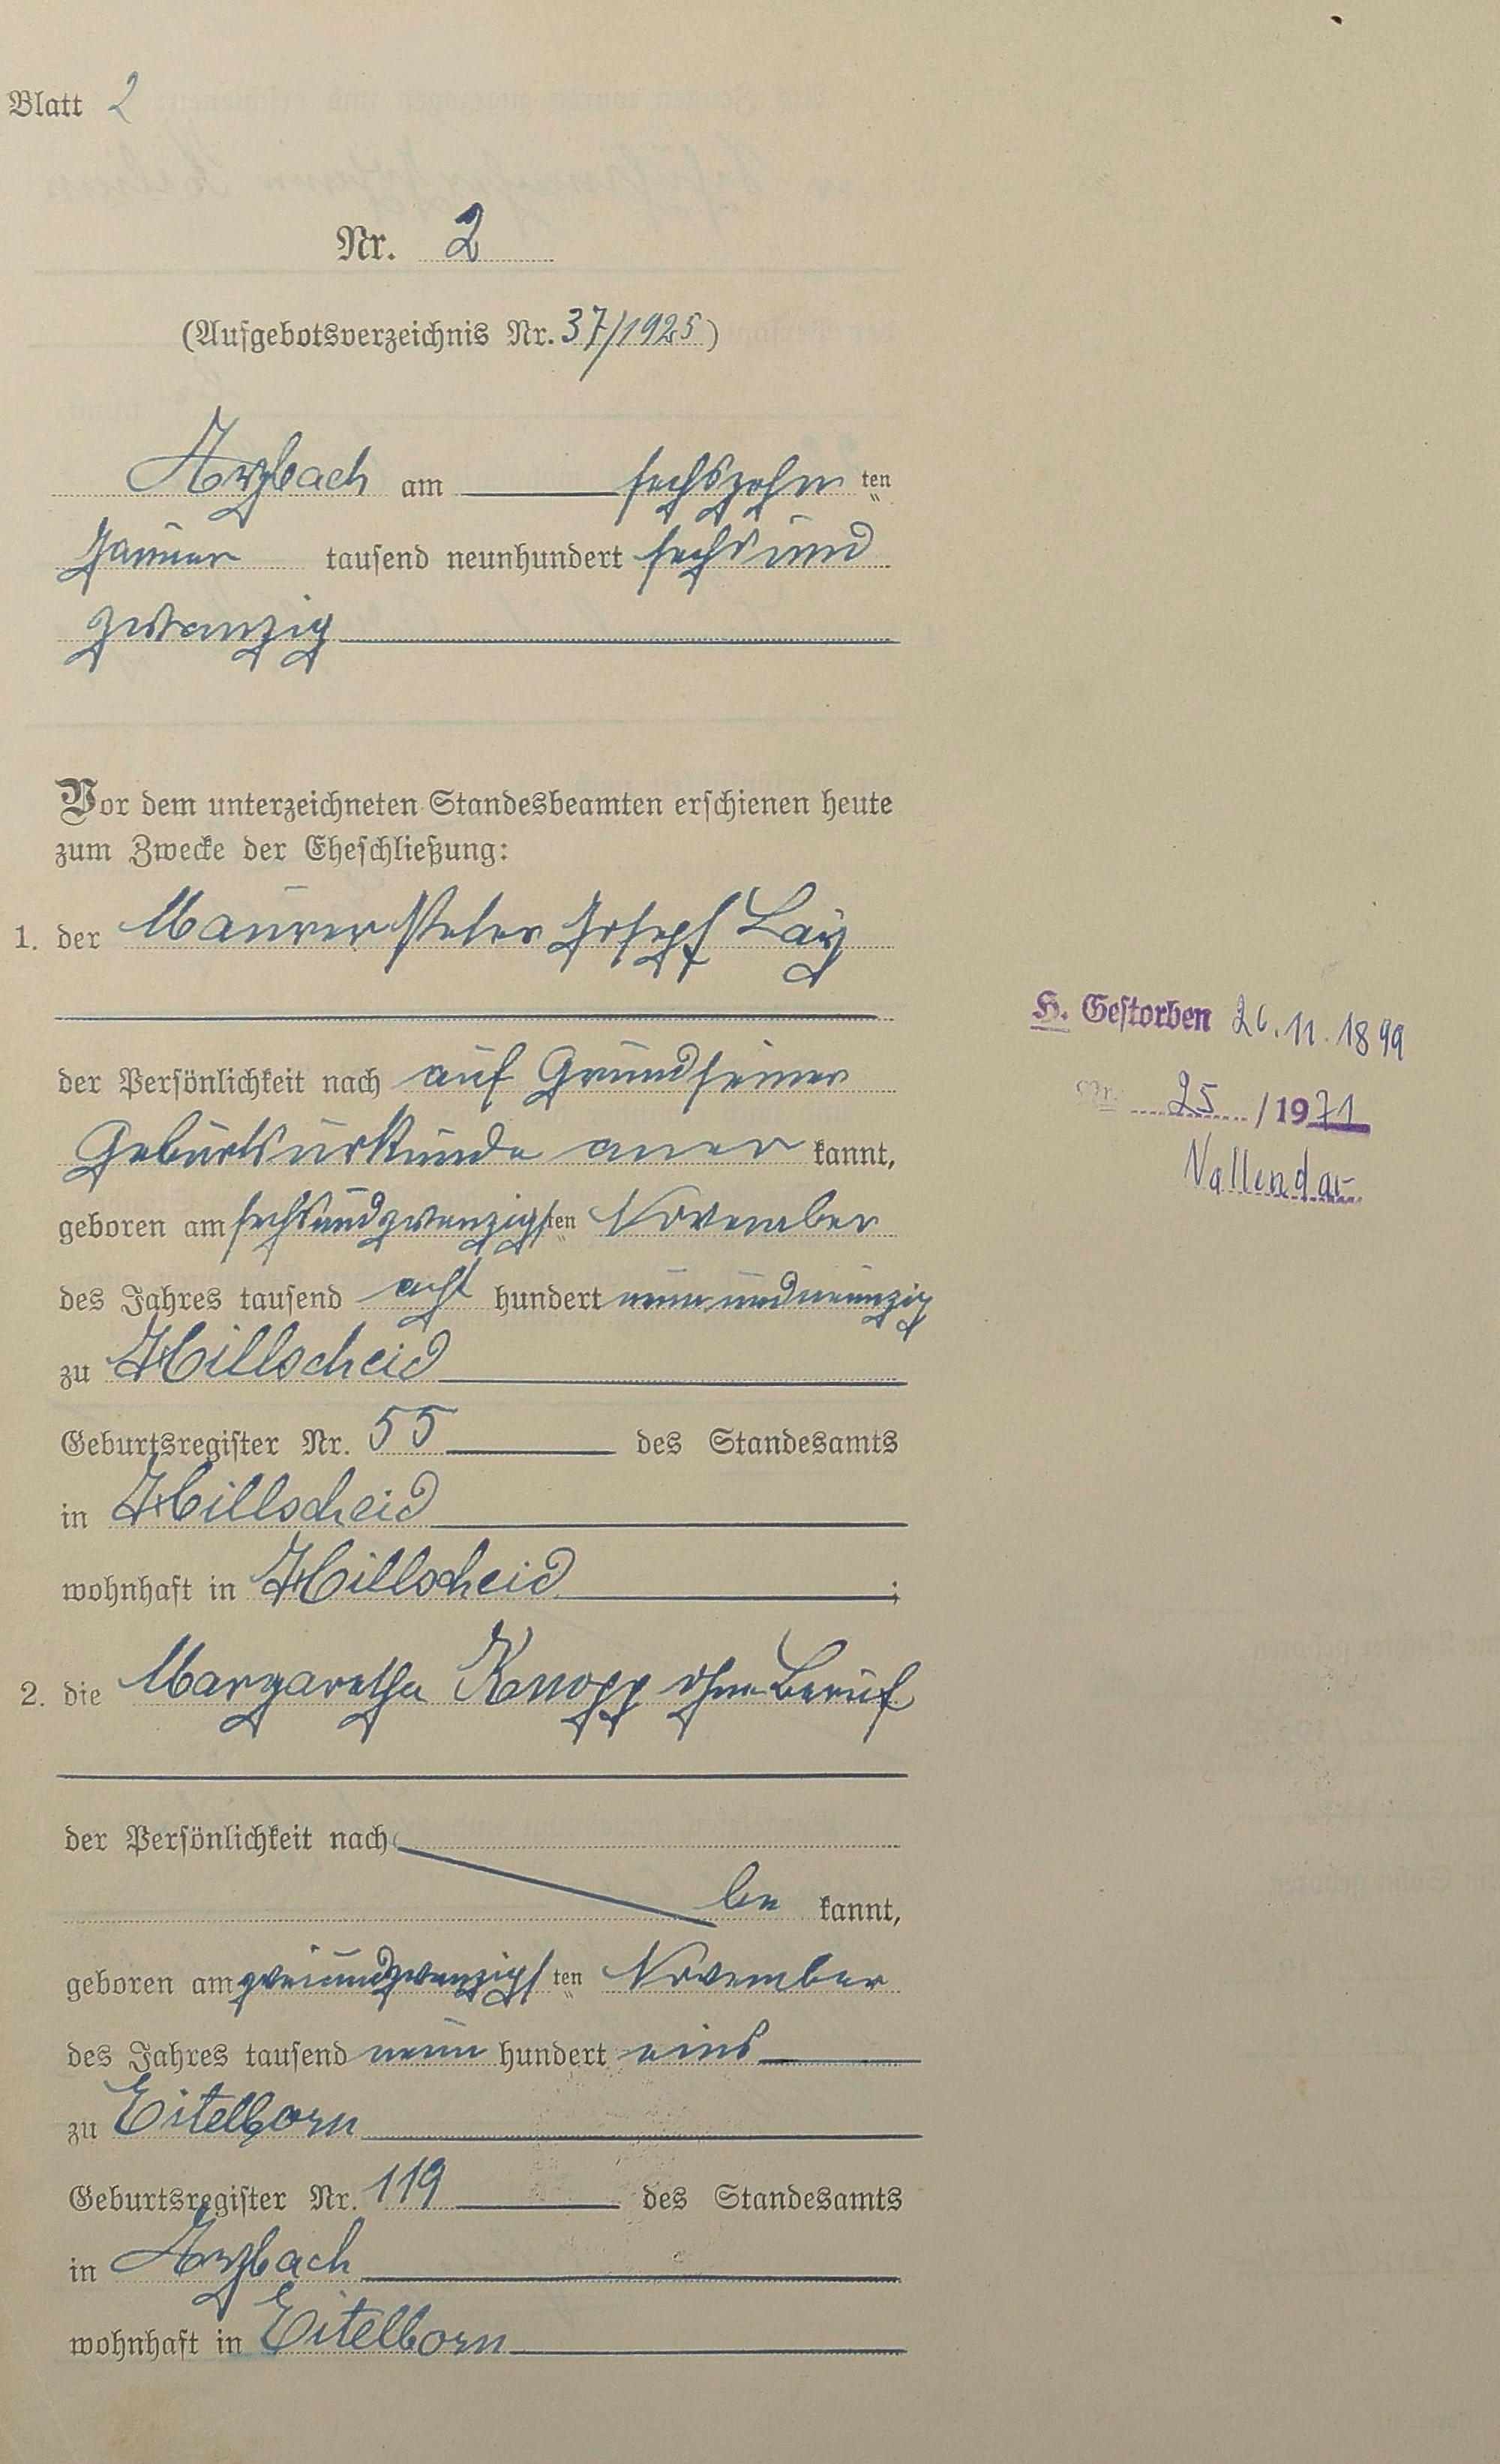 Blatt 2
Nr. 2
(Aufgebotsverzeichnis Nr. 37/1925)
Arzbach am sechszehn ten
Januar tausend neunhundert sechs und
zwanzig
Vor dem unterzeichneten Standesbeamten erschienen heute
zum Zwecke der Eheschließung:
1. der Maurer Peter Josef Lay
der Persönlichkeit nach auf Grund seiner
Geburtsurkunde aner kannt,
geboren am sechsundzwanzigsten November
des Jahres tausend acht hundert neunundneunzig
zu Hillscheid
Geburtsregister Nr. 55 des Standesamts
in Hillscheid
wohnhaft in Hillscheid ;
H. Gestorben 26.11.1899
Nr. 25 / 1971
Vallendar
2. die Margaretha Knopp ohne Beruf
der Persönlichkeit nach
be kannt,
geboren am zweiundzwanzigsten November
des Jahres tausend neun hundert eins
zu Eitelborn
Geburtsregister Nr. 119 des Standesamts
in Arzbach
wohnhaft in Eitelborn